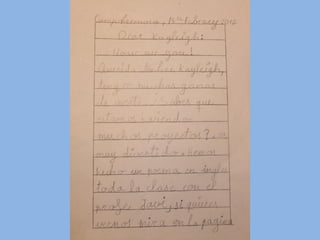 Campohermoso, 15th February 2012
Dear Kayleigh:
How are you?
Querida Kayleigh,
tengo muchas ganas
de verte. ¿Sabes que
estamos haciendo
muchos proyectos? es
muy divertido. Hemos
hecho un poema en inglés
toda la clase con el
profe Javi, si quieres
vernos mira en la pagina